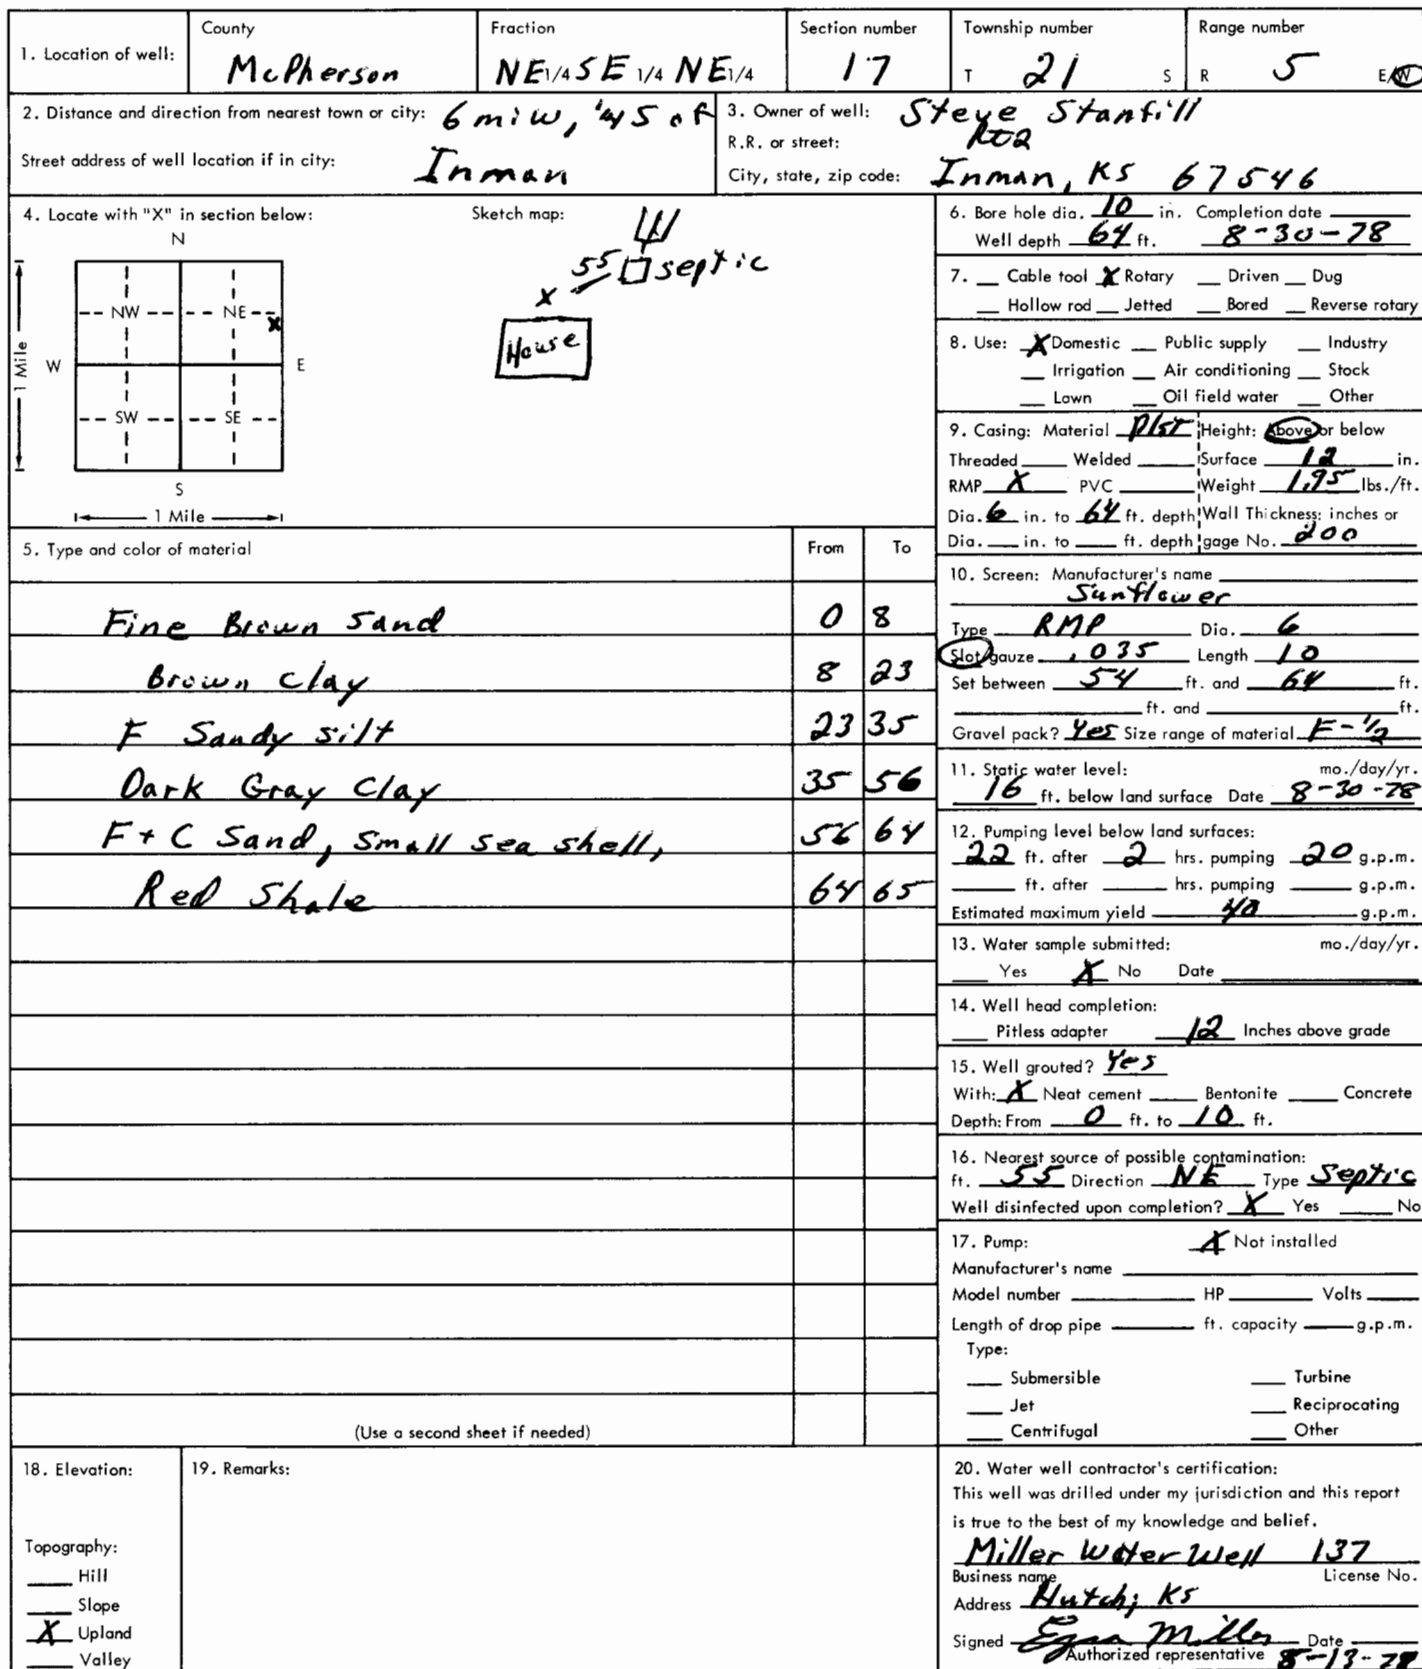 1. Location of well:
County
McPherson
Fraction
NE 1/4 SE 1/4 NE 1/4
Section number
17
Township number
T 21 S
Range number
R 5 E/W
2. Distance and direction from nearest town or city: 6 mi W, 1/4 S of
Street address of well location if in city: Inman
3. Owner of well: Steve Stanfill
R.R. or street: Rt 2
City, state, zip code: Inman, KS 67546
4. Locate with "X" in section below:
N
NW NE X
W E
SW SE
S
1 Mile
1 Mile
Sketch map:
55 septic
X
House
5. Type and color of material From To
Fine Brown Sand 0 8
Brown Clay 8 23
F Sandy silt 23 35
Dark Gray Clay 35 56
F + C Sand, Small sea shell, 56 64
Red Shale 64 65
(Use a second sheet if needed)
6. Bore hole dia. 10 in. Completion date
Well depth 64 ft. 8-30-78
7. __ Cable tool X Rotary __ Driven __ Dug
__ Hollow rod __ Jetted __ Bored __ Reverse rotary
8. Use: X Domestic __ Public supply __ Industry
__ Irrigation __ Air conditioning __ Stock
__ Lawn __ Oil field water __ Other
9. Casing: Material Plst Height: Above or below
Threaded __ Welded __ Surface 12 in.
RMP X PVC __ Weight 1.95 lbs./ft.
Dia. 6 in. to 64 ft. depth Wall Thickness: inches or
Dia. __ in. to __ ft. depth gage No. 200
10. Screen: Manufacturer's name
Sunflower
Type RMP Dia. 6
Slot/gauze .035 Length 10
Set between 54 ft. and 64 ft.
__ ft. and __ ft.
Gravel pack? Yes Size range of material F-1/2
11. Static water level: mo./day/yr.
16 ft. below land surface Date 8-30-78
12. Pumping level below land surfaces:
22 ft. after 2 hrs. pumping 20 g.p.m.
__ ft. after __ hrs. pumping __ g.p.m.
Estimated maximum yield 40 g.p.m.
13. Water sample submitted: mo./day/yr.
__ Yes X No Date __
14. Well head completion:
__ Pitless adapter 12 Inches above grade
15. Well grouted? Yes
With: X Neat cement __ Bentonite __ Concrete
Depth: From 0 ft. to 10 ft.
16. Nearest source of possible contamination:
ft. 55 Direction NE Type Septic
Well disinfected upon completion? X Yes __ No
17. Pump: X Not installed
Manufacturer's name __
Model number __ HP __ Volts __
Length of drop pipe __ ft. capacity __ g.p.m.
Type:
__ Submersible __ Turbine
__ Jet __ Reciprocating
__ Centrifugal __ Other
18. Elevation:
Topography:
__ Hill
__ Slope
X Upland
__ Valley
19. Remarks:
20. Water well contractor's certification:
This well was drilled under my jurisdiction and this report
is true to the best of my knowledge and belief.
Miller Water Well 137
Business name License No.
Address Hutch, KS
Signed Miller Date
Authorized representative